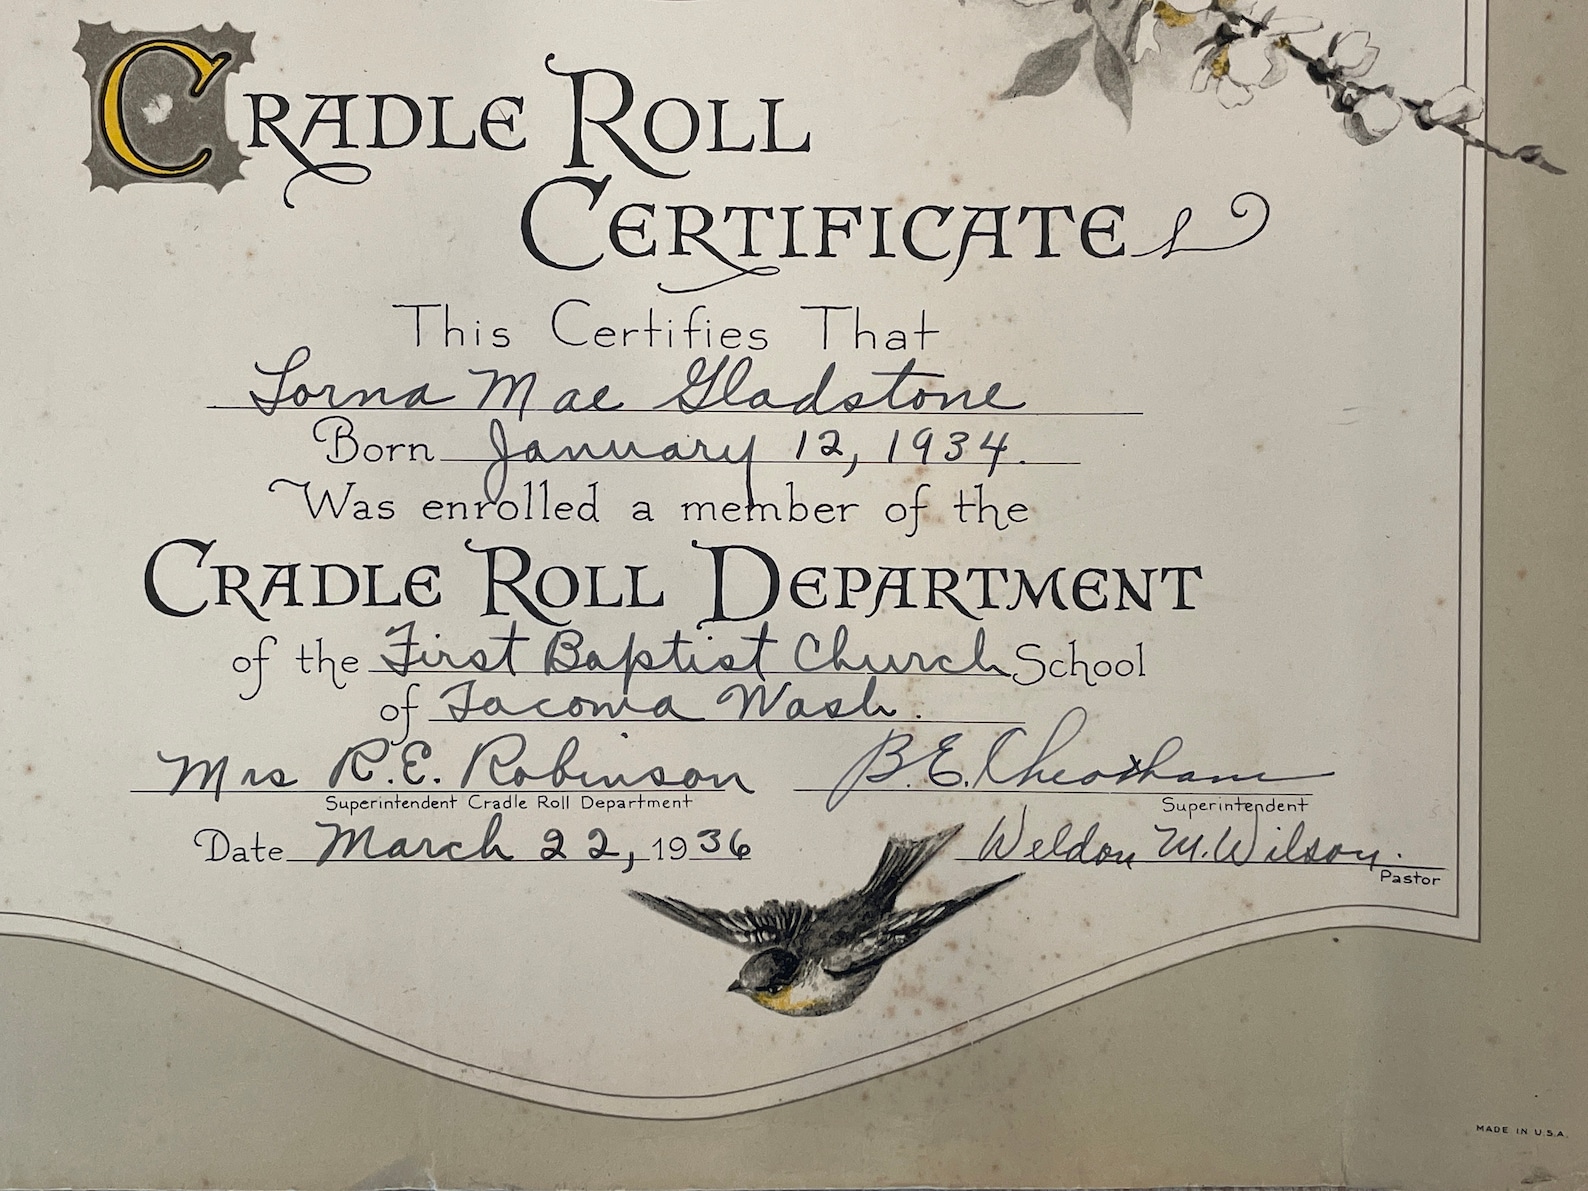 CRADLE ROLL
CERTIFICATE
This Certifies That
Lorna Mae Gladstone
Born January 12, 1934.
Was enrolled a member of the
CRADLE ROLL DEPARTMENT
of the First Baptist Church School
of Tacoma Wash.
Mrs R.E. Robinson B.E. Cheatham
Superintendent Cradle Roll Department Superintendent
Date March 22, 1936 Weldon M. Wilson.
Pastor
MADE IN U.S.A.